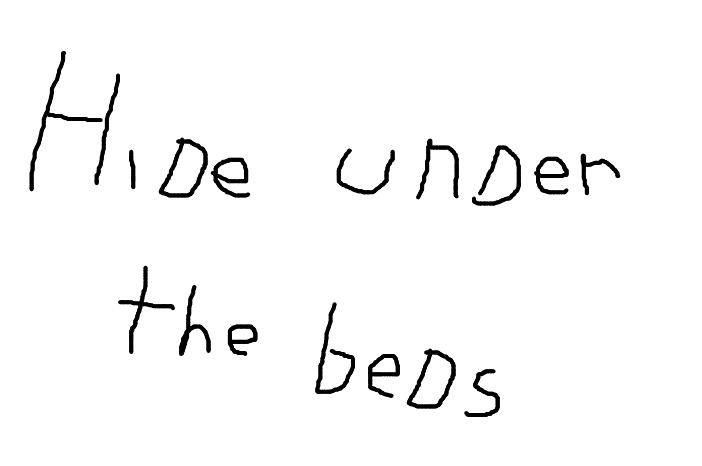 Hide under
the beds